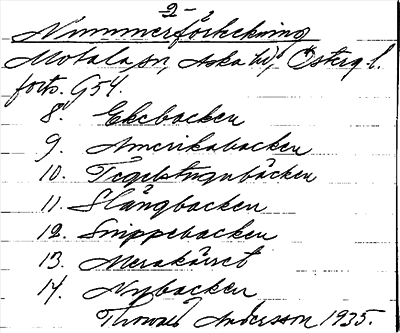 -2-
Nummerförteckning
Motala sn, Aska hd, Österg l.
forts. G54.
8. Ekebacken
9. Amerikabacken
10. Tegelstugubäcken
11. Slängbacken
12. Snippebacken
13. Merakärret
14. Nybacken
Thorvald Andersson 1935.